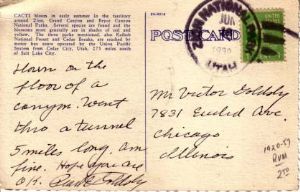 CACTI bloom in early summer in the territory
around Zion, Grand Canyon and Bryce Canyon
National Parks. Several species are found and the
blossoms most generally are in shades of red and
yellow. The three parks mentioned, also Kaibab
National Forest and Cedar Breaks, are reached by
motor bus tours operated by the Union Pacific
System from Cedar City, Utah, 275 miles south
of Salt Lake City.
Down on the
floor of a
canyon. Went
thru a tunnel
5 miles long. am
fine. Hope you are
O.K. Goldsby
POSTCARD
ZION NATIONAL
JUN
UTAH
Mr Victor Goldsby
7831 Euclid Ave.
Chicago
Illinois
1920-57
RVM